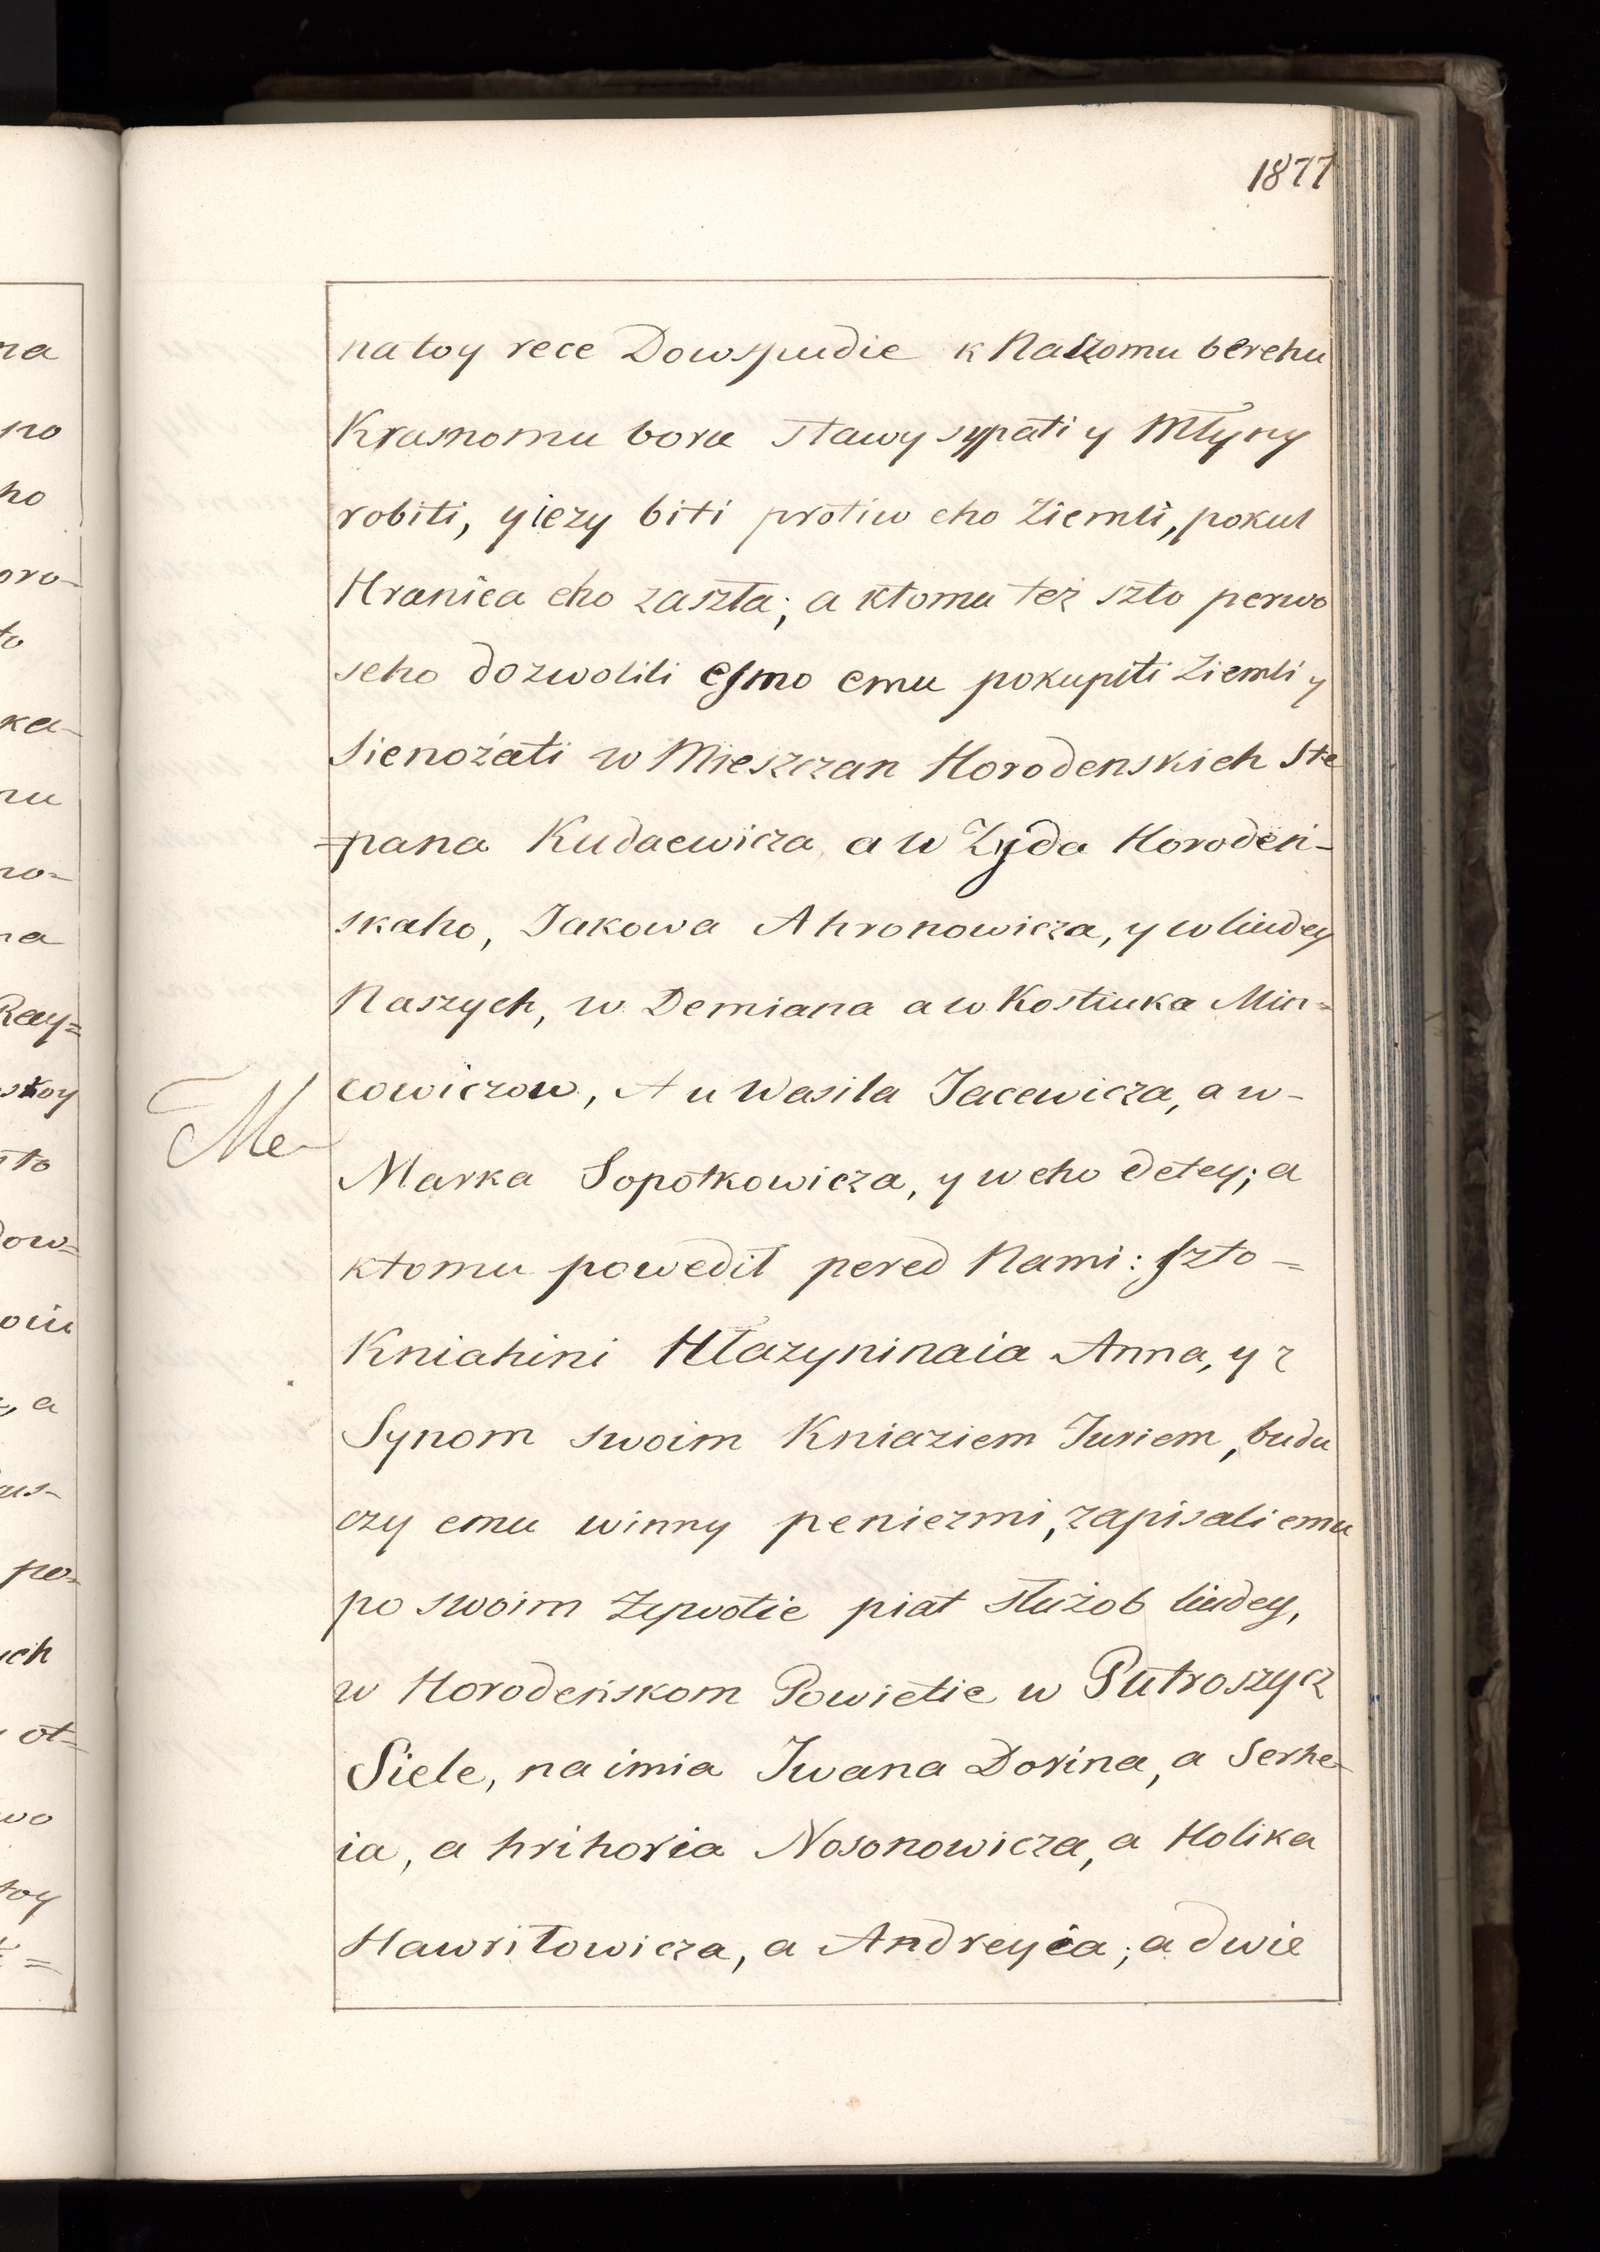 1877
na toy rece Dowspudie k Naszomu berehu
Krasnomu boru stawy sypati y Młyny
robiti, y iezy biti protiw eho Ziemli, pokul
Hranica eho zaszła; a ktomu też szto perwo
seho dozwolili esmo emu pokupiti Ziemli y
Sienożati w Mieszczan Horodenskich Ste
=pana Kudaewicza, a w Żyda Horodeń-
skaho, Jakowa Ahronowicza, y w liudey
Naszych, w Demiana a w Kostiuka Min=
cowiczow, A u Wasila Jacewicza, a w-
Me
Marka Sopotkowicza, y w eho detey; a
ktomu powedił pered Nami: szto =
Kniahini Hłazyninaia Anna, y z
Synom swoim Kniaziem Juriem, budu
czy emu winny peniezmi, zapisali emu
po swoim żywotie piat służob liudey,
w Horodeńskom Powietie w Putroszycz
Siele, na imia Iwana Dorina, a Serhe-
ia, a hrihoria Nosonowicza, a Holika
Hawriłowicza, a Andreyia; a dwie
na
no
ho
oro-
to
ka-
nu
no-
na
Ray=
skoy
sto
dow=
oiu
, a
us-
po-
ych
ot=
wo
toy
=